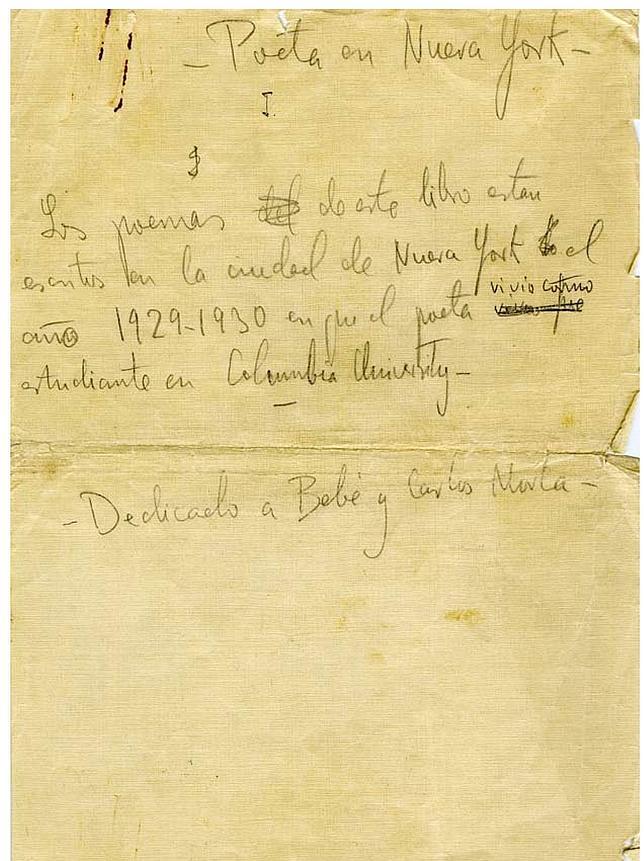 - Poeta en Nueva York -
I.
Los poemas de este libro estan
escritos en la ciudad de Nueva York el
año 1929-1930 en que el poeta vivio como
estudiante en Columbia University -
- Dedicado a Bebé y Carlos Morla -